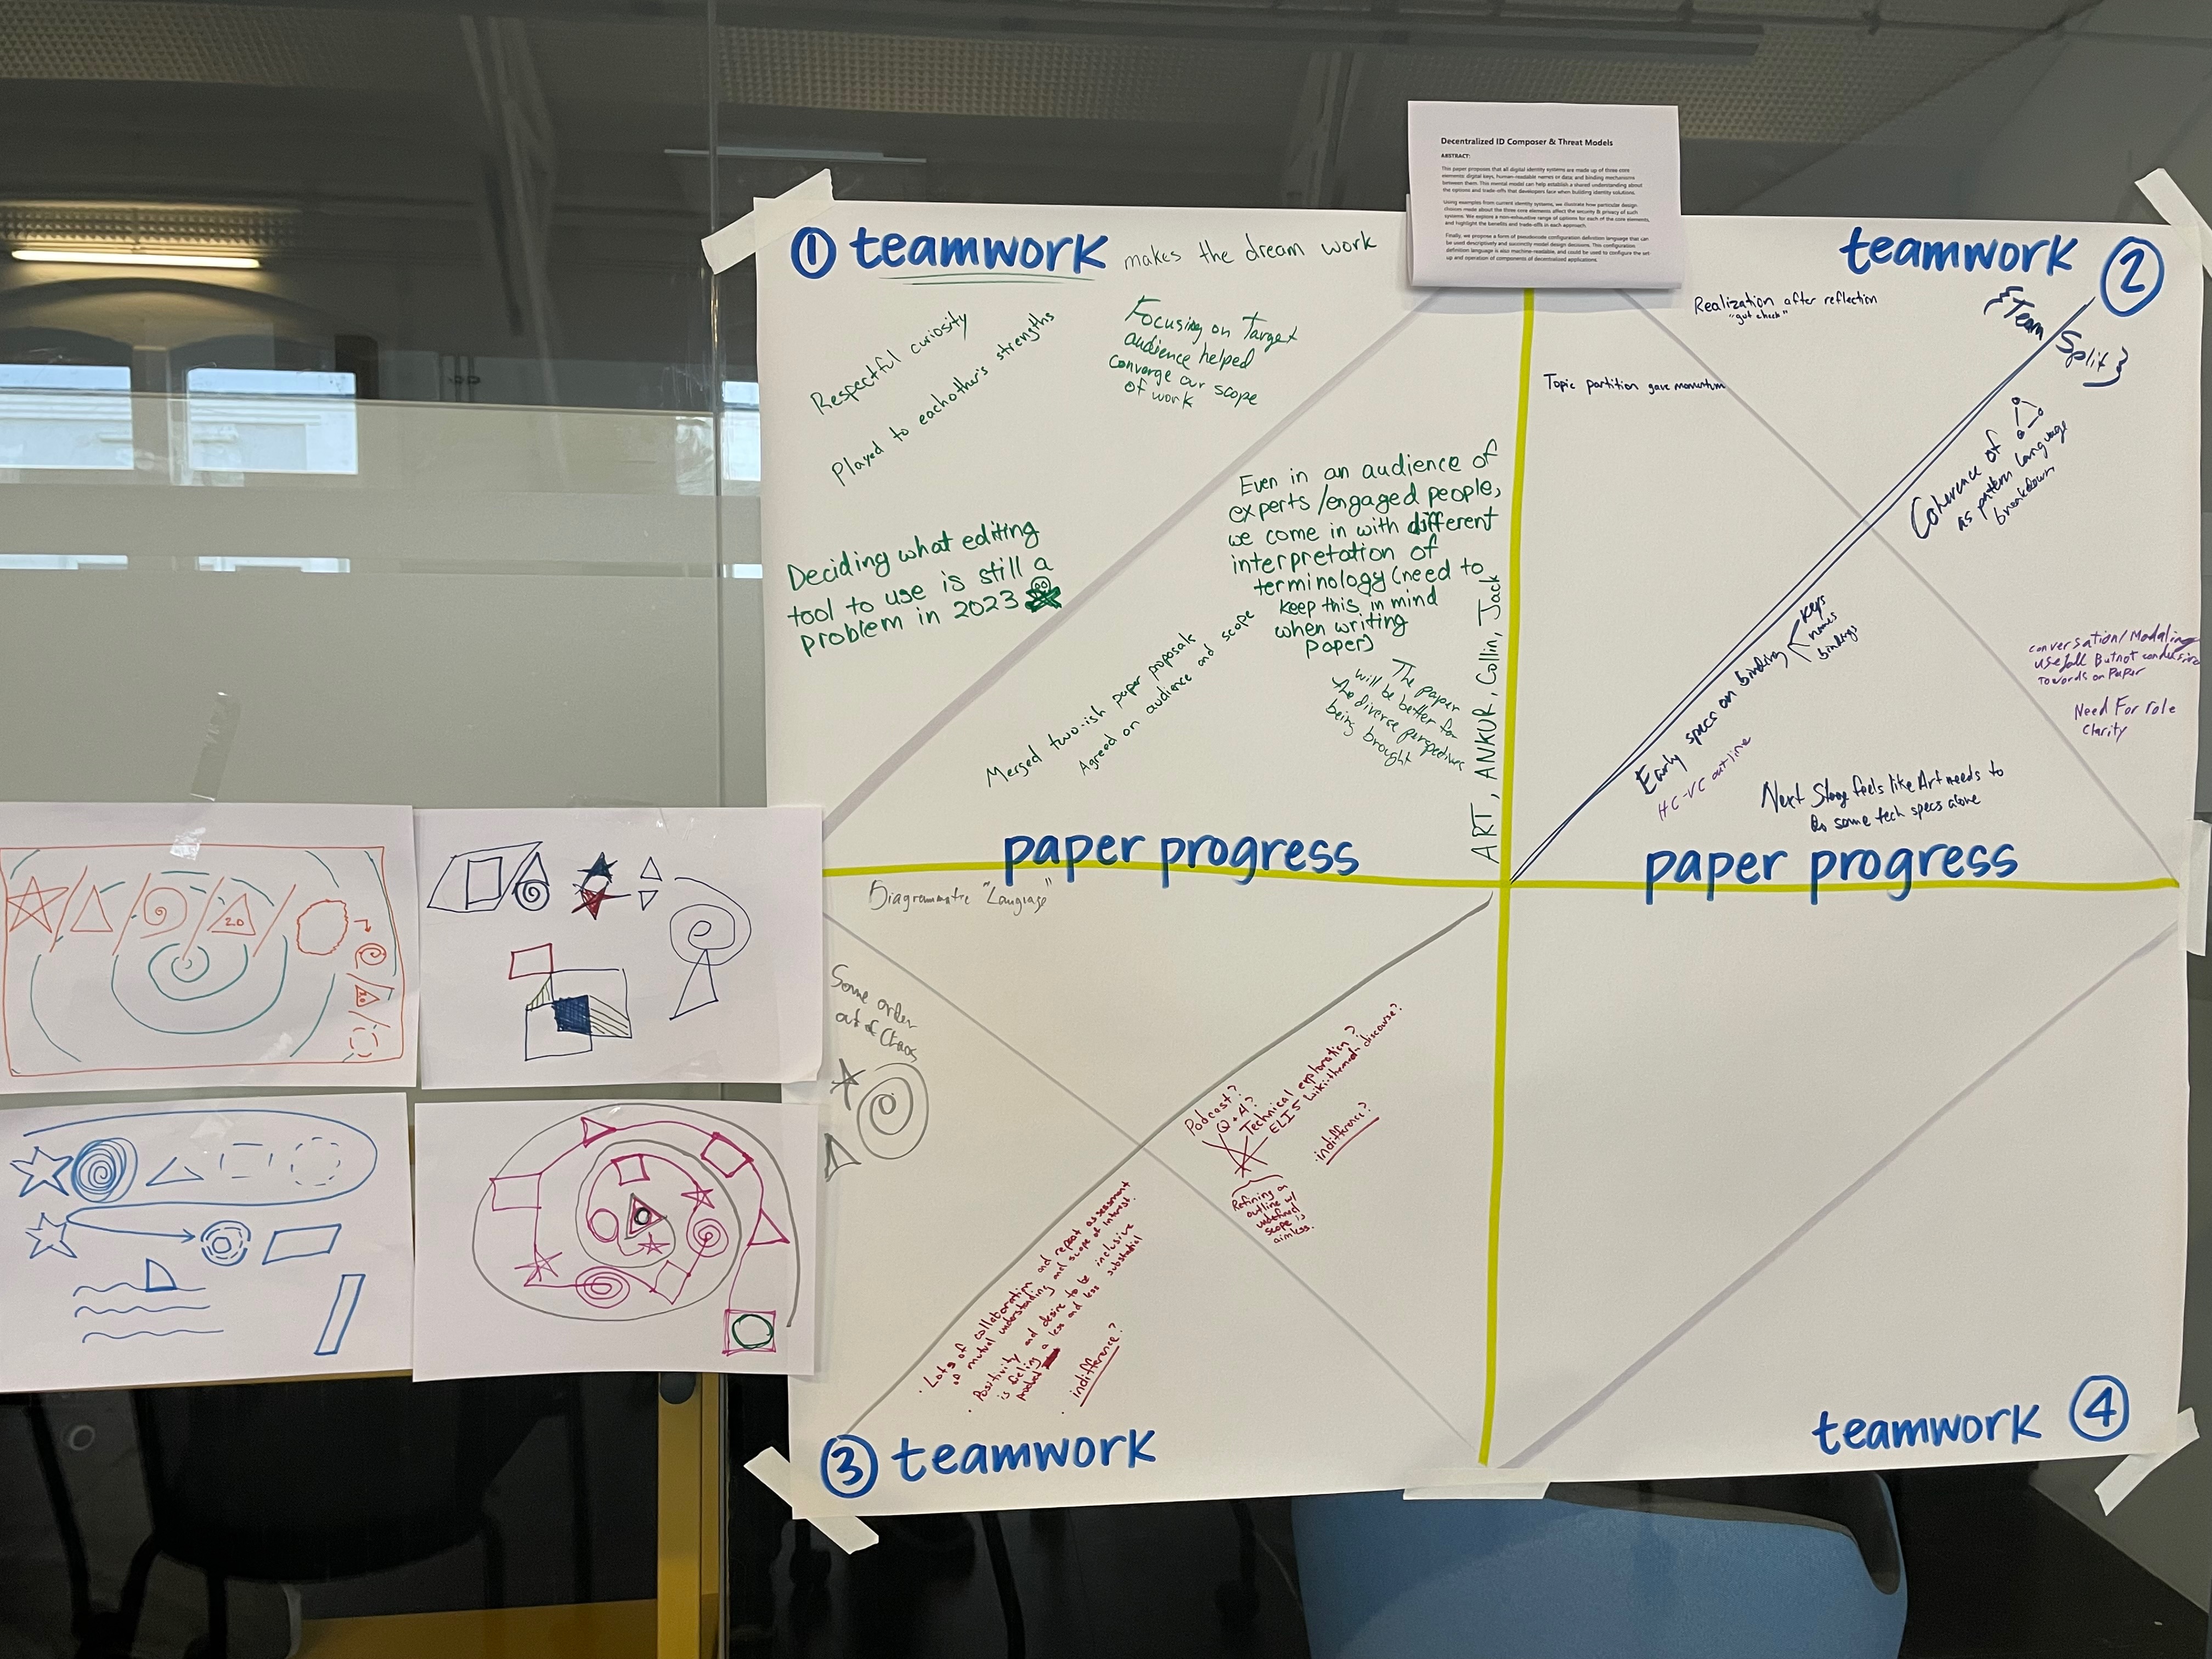 Decentralized ID Composer & Threat Models
ABSTRACT:
This paper proposes that all digital identity systems are made up of three core
elements: digital keys, human-readable names or data, and binding mechanisms
between them. This mental model can help establish a shared understanding about
the options and trade-offs that developers face when building identity solutions.
Using examples from current identity systems, we illustrate how particular design
choices made about the three core elements affect the security & privacy of such
systems. We explore a non-exhaustive range of options for each of the core elements,
and highlight the benefits and trade-offs in each approach.
Finally, we propose a form of pseudocode configuration definition language that can
be used descriptively and succinctly model design decisions. This configuration
definition language is also machine-readable, and could be used to configure the set
up and operation of components of decentralized applications.
1 teamwork makes the dream work
Respectful curiosity
Played to eachother's strengths
Focusing on Target
audience helped
converge our scope
of work
Deciding what editing
tool to use is still a
problem in 2023
Even in an audience of
experts/engaged people,
we come in with different
interpretation of
terminology (need to
keep this in mind
when writing
paper)
Merged two-ish paper proposals
Agreed on audience and scope
The paper
will be better for
the diverse perspectives
being brought
ART, ANKUR, Collin, Jack
paper progress
teamwork 2
Realization after reflection
"gut check"
{Team
Split}
Topic partition gave momentum
Coherence of
as pattern language
breakdown
Early specs on binding
keys
names
bindings
HC-VC outline
conversation/Modaling
usefull But not conducive
towards on Paper
Need For role
Clarity
Next Stage feels like Art needs to
do some tech specs alone
paper progress
Diagrammatic "Language"
Some order
out of Chaos
Podcast?
Q+A?
Technical exploration?
ELI5 wiki-themed discourse?
indifference?
Refining an
outline w/
undefined
scope is
aimless.
Lots of collaboration and repeat assessment
of mutual understanding and scope of interest.
Positivity and desire to be inclusive
is feeling a less and less substantial
product
indifference?
3 teamwork
teamwork 4
2.0
2.0